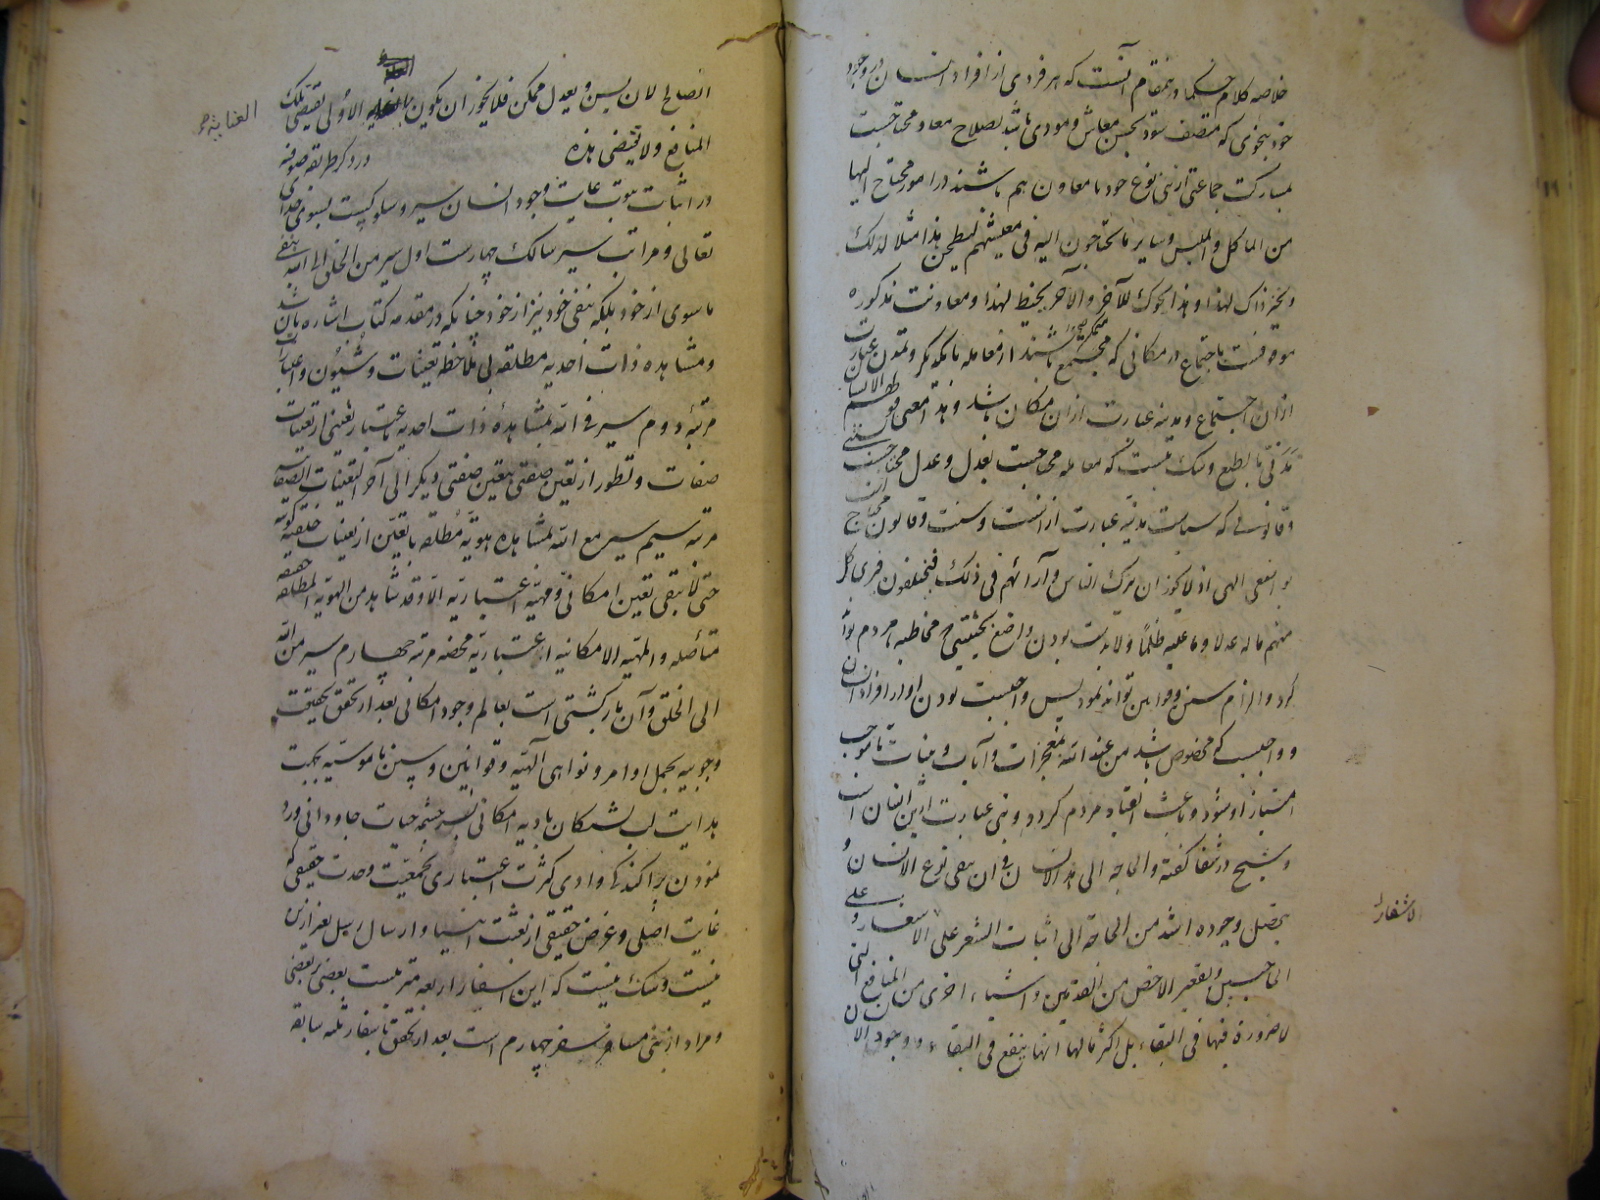 خلاصه کلام حکما در نمقام آنست که هر فردی از افراد انسان در وجود
خود بنحوی که متصف شود بحسن معاش و مودی باشد بصلاح معاد محتاجست
بمشارکت جماعتی از بنی نوع خود تا معاون هم باشند در امور محتاج الیها
من الماکل و الملبس و سایر ما یحتاجون الیه فی معیشتهم لیطحن هذا مثلا لذلک
و یخبز ذاک لهذا و هذا یحوک للآخر و الآخر یخیط لهذا و معاونت مذکوره
موقوفست باجتماع در مکانی که مجتمع باشند از معامله با یکدیگر و تمدن عبارت
ازان اجتماع و مدینه عبارت ازان مکان باشد و هذا معنی قولهم الانسان
مدنی بالطبع و شک نیست که معامله محتاجست بعدل و عدل محتاجست بسنتی
و قانونی که سیاست مدنیه عبارت ازانست و سنت و قانون محتاج
بواضعی الهی اذ لا یجوز ان یترک الناس و آرائهم فی ذلک فیختلفون فیری کل
منهم ما له عدلا و ما علیه ظلما و لابدست بودن واضع بحیثیتی که مخاطبه مردم تواند
کرد و الزام سنن و قوانین تواند نمود پس واجبست بودن او از افراد انسان
و واجبست که مخصوص باشد من عند الله بمعجزات و آیات و بینات تا موجب
امتیاز او شود و باعث انقیاد مردم گردد و نبی عبارت ازین انسان است
و شیخ در شفا گفته و الحاجه الی هذا الانسان فی ان یبقی نوع الانسان و
یحصل وجوده اشد من الحاجه الی اثبات الشعر علی الاشفار و علی
الحاجبین و تقعیر الاخمص من القدمین و اشیاء اخری من المنافع التی
لا ضرورة فیها فی البقاء بل اکثر مالها انها ینفع فی البقاء و وجود الانسان
الاشفار
الصالح لان یسن و یعدل ممکن فلا یجوز ان یکون العنایه الاولی یقتضی تلک
العنایة
المنافع و لا تقتضی هذه در ذکر طریقه صوفیه
در اثبات نبوت غایت وجود انسان سیر و سلوکیست بسوی خدای
تعالی و مراتب سیر سالک چهارست اول سیر من الخلق الی الله بنفی
ماسوی از خود بلکه بنفی خود نیز از خود چنانکه در مقدمه کتاب اشاره بآن شد
و مشاهده ذات احدیه مطلقه بی ملاحظه تعینات و شیون و اعتبارات
مرتبهٔ دوم سیر فی الله بمشاهدهٔ ذات احدیه باعتبار تعینی از تعینات
صفات و تطور از تعین صفتی بتعین صفتی دیگر الی آخر التعینات الصفاتیه
مرتبه سیم سیر مع الله بمشاهده هویة مطلقه با تعین از تعینات خلقیه کونیه
حتی لا یبقی تعین امکانی و مهیه اعتباریه الا و قد شاهد من الهویه المطلقه حقیقه
متأصله و المهیه الامکانیه اعتباریه محضه مرتبه چهارم سیر من الله
الی الخلق و آن بازگشتی است بعالم وجود امکانی بعد از تحقق بحقیقت
وجوبیه بحمل اوامر و نواهی آلهیه و قوانین و سنن ناموسیه بجهت
هدایت لب تشنگان بادیه امکانی بسرچشمه حیات جاودانی و رد
نمودن پراکندگان وادی کثرت اعتباری بجمعیت وحدت حقیقی که
غایت اصلی و غرض حقیقی از بعثت انبیا و ارسال رسل بغیر ازین
نیست و شک نیست که این اسفار اربعه مترتبست بعضی بر بعضی
و مراد از نبی مسافر بسفر چهارم است بعد از تحقق باسفار ثلثه سابقه